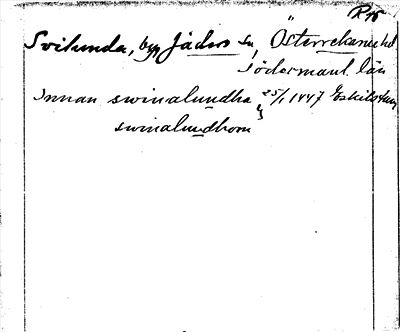 R 15
Svilunda, by, Jäders sn, Österrekarne hd
Södermanl. län
Innan swinalundha 25/1 1447 Eskilstuna
swinalundhom